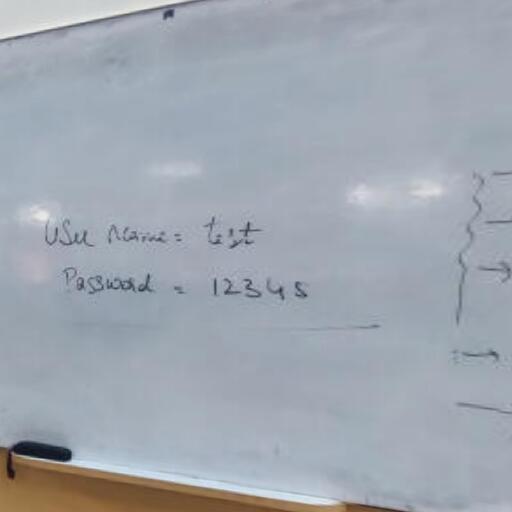 User name = test
Password = 12345